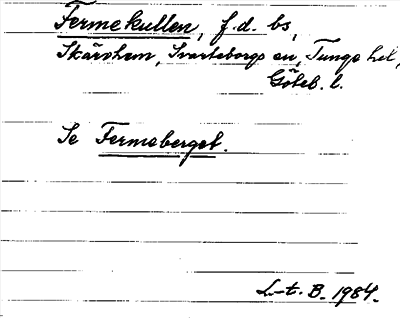 Fermekullen, f.d. bs,
Skärshem, Svarteborgs sn, Tunge hd,
Göteb. l.
Se Fermeberget.
L-t. B. 1984.